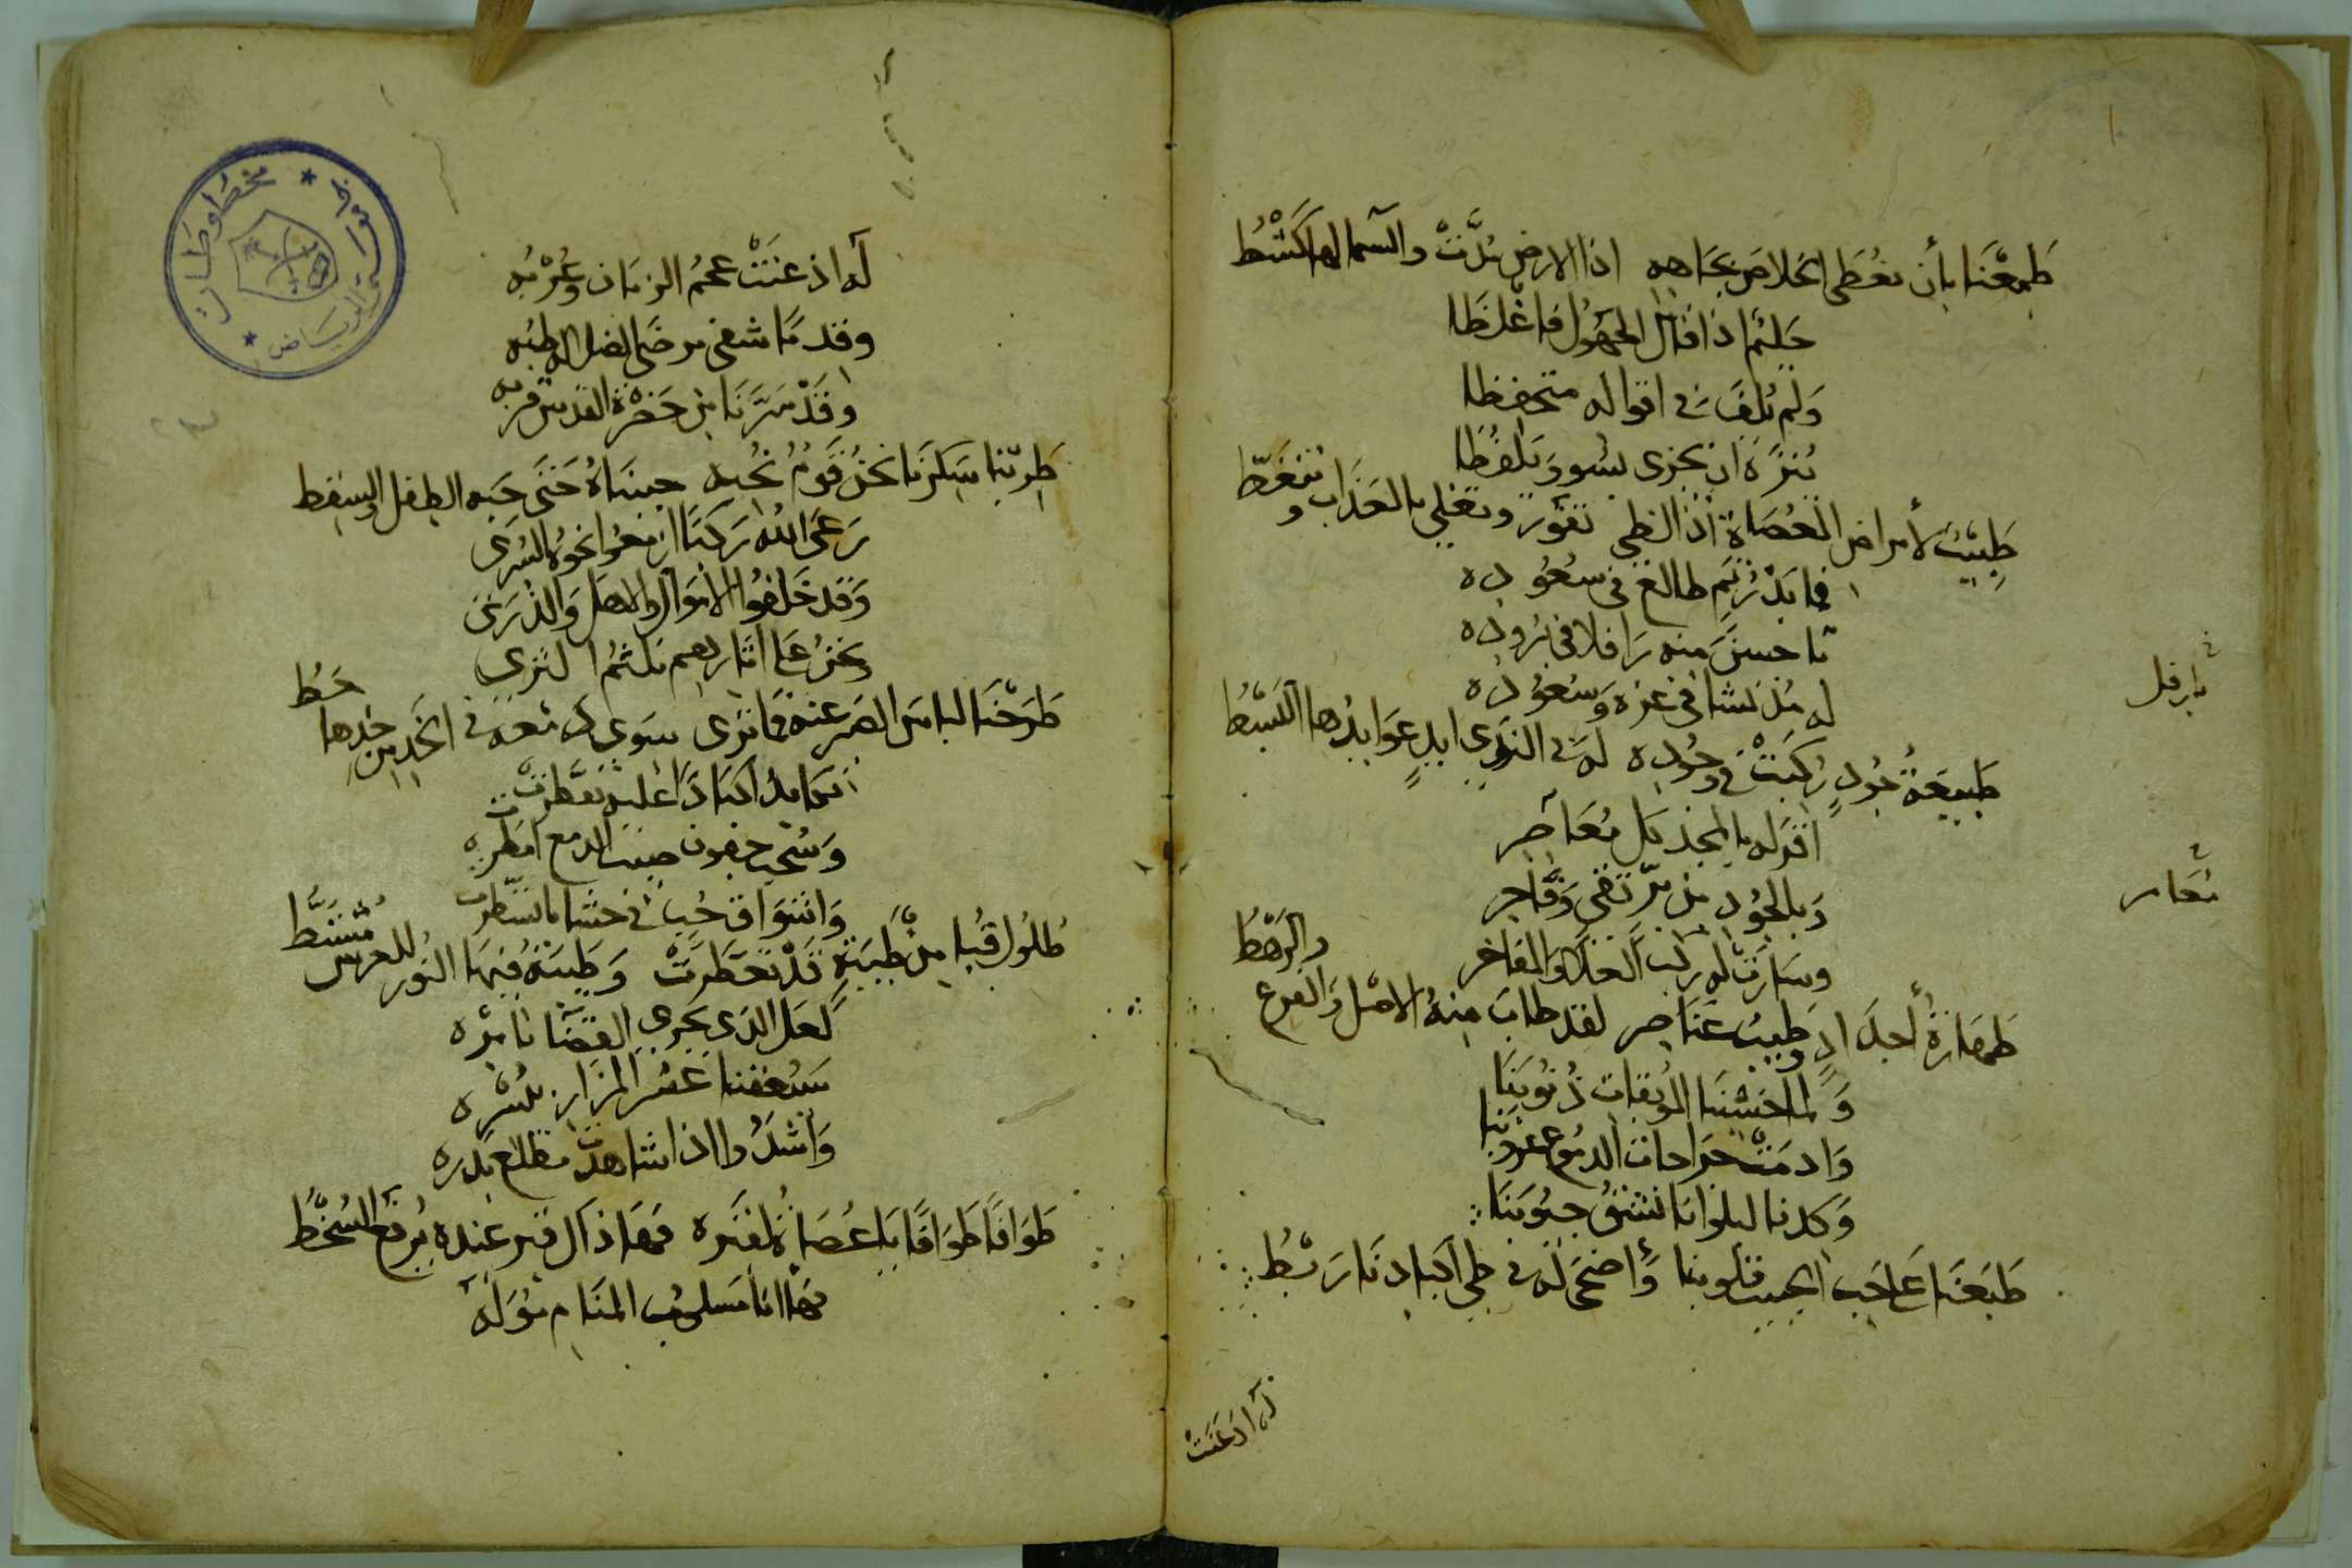 طَمِعْنَا بأن نعُطَى الخلاصَ بجَاهِهِ اذا الارض بُدَّلتْ والسّما لها كَشْطُ
حَليْمٌ اذا قال الجهُولُ فاغْلظَا
وَلم يُلفَ في اقواله متحفظا
تنزه ان يجزى بسُوء وَيلفُظَا
طَبِيْبٌ لأمراض العُصَاة اذا لظى تفوّر وتغلي بالعَذاب وتنغَطُّ
فيا بَدْرُ تِمّ طالع في سعُوده
يا حسنَ منه رَافلا في برُوده
في
بارفل
له مُذ نشا في عزه وَسعُوده
طَبيعَةُ جُودٍ رُكبَتْ في وجُوده لهَ في الندَى ايدٍ عَوايدُها البَسْطُ
اقرّ له بالمجد كل مُعَاصِر
مُعَاصر
وَبالجُود من برّ تقي وَفاجر
وسَارت له ركب العُلا والمفاخر
طَهَارَةُ أجدَادٍ وطِيبُ عَنَاصر لقد طابَ منهُ الاصْل وَالفرع والرَّهطُ
وَلما خشينَا المُوبقات ذُنُوبَنَا
وَادمَتْ جراحات الدموع غروبَنا
وَكدنا لبلوانا نشقُ جيُوبَنَا
طَبَعْنَا عَلَى حب الحبيب قلوبنا وَأضحَى له في طي اكبادنَا رَبْطُ
لَه اذعَنَتْ
لَه اذعنَتْ عجمُ الزمَان وَعُرْبُه
وقد مّا شفى مرضَى الضلالة طبُه
وقَدْ سَرَّنَا من حَضْرَة القدس قربُه
طَرِبْنا سَكِرْنا نحنُ قَوْمٌ نُحِبه حبيبَاهُ حَتَى حَبه الطفل والسقط
رَعَى الله رَكبًا ازمعُوا نحوُه السُرَى
وَقد خَلفُوا الاموَال والاهل وَالذُرَى
وَنحنُ علَى اثارهم نلثمُ الثرى
طَرَحْنَا لباس الصَبر عنه فما تَرى سوَى دمعة في الخَدين خدها خَطُ
نكابد اكبادًا عليه تفَطّرَتْ
وَسُحْبَ جفون صَيّبَ الدمع امطرت
وَاشوَاق حُب في حشانا تسَطرت
طُلُول قُبا مِن طَيْبَةٍ قَدْ تعَطَرتْ وَطَيبَةُ فيهَا النُور للعرس مُشتَطُ
لَعَل الذي يجري القَضَا بامْرِه
سَيُعقبنا عُسْر المزَار بيُسْره
وَأَشْدُوا اذا شاهدت مطلع بَدره
طَوَافًا طَوَافًا يا عُصَاةُ لقبْره فهَاذاك قبر عنده يُرفع السُخْطُ
فهَا انا مَسلوبُ المنَام مُوَلَهُ
مخطوطات
الرياض